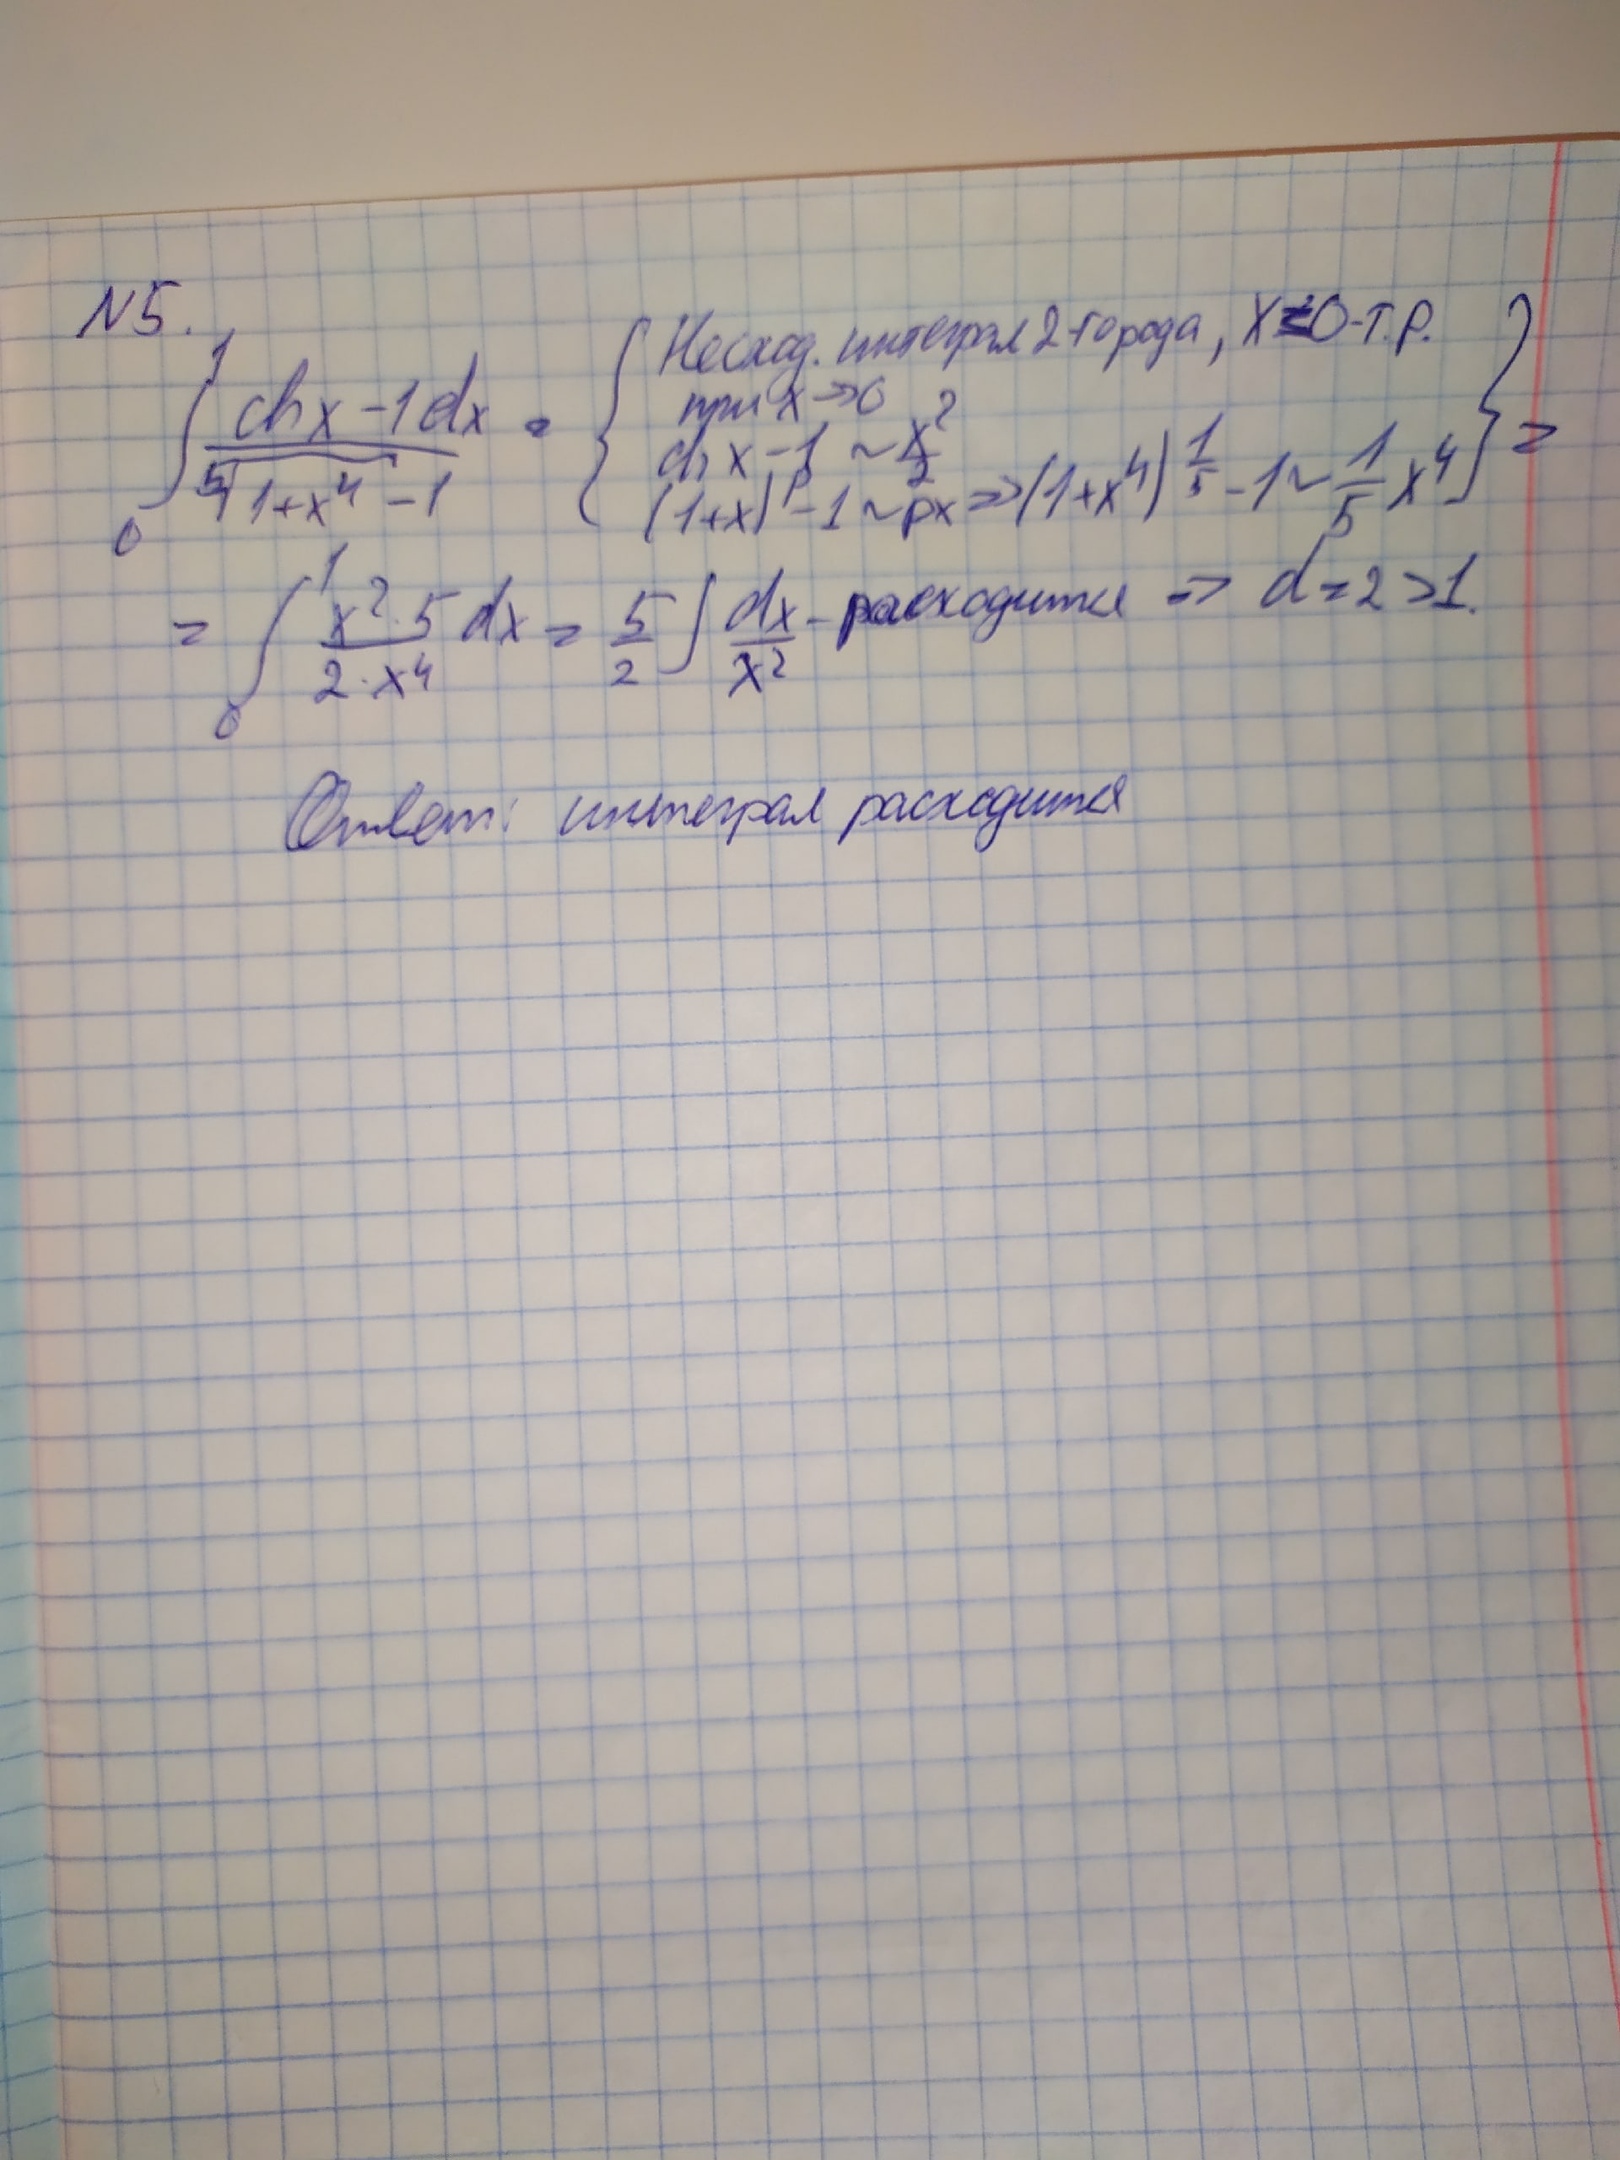 N5.
∫₀¹ (ch x - 1 dx)/(⁵√(1+x⁴) - 1) = { Несход. интеграл 2-го рода, x=0-т.р.
при x→0
ch x - 1 ~ x²/2
(1+x)^p - 1 ~ px ⇒ (1+x⁴)^(1/5) - 1 ~ 1/5 x⁴ } =
= ∫₀¹ (x²·5)/(2·x⁴) dx = 5/2 ∫ dx/x² - расходится ⇒ d=2>1.
Ответ: интеграл расходится